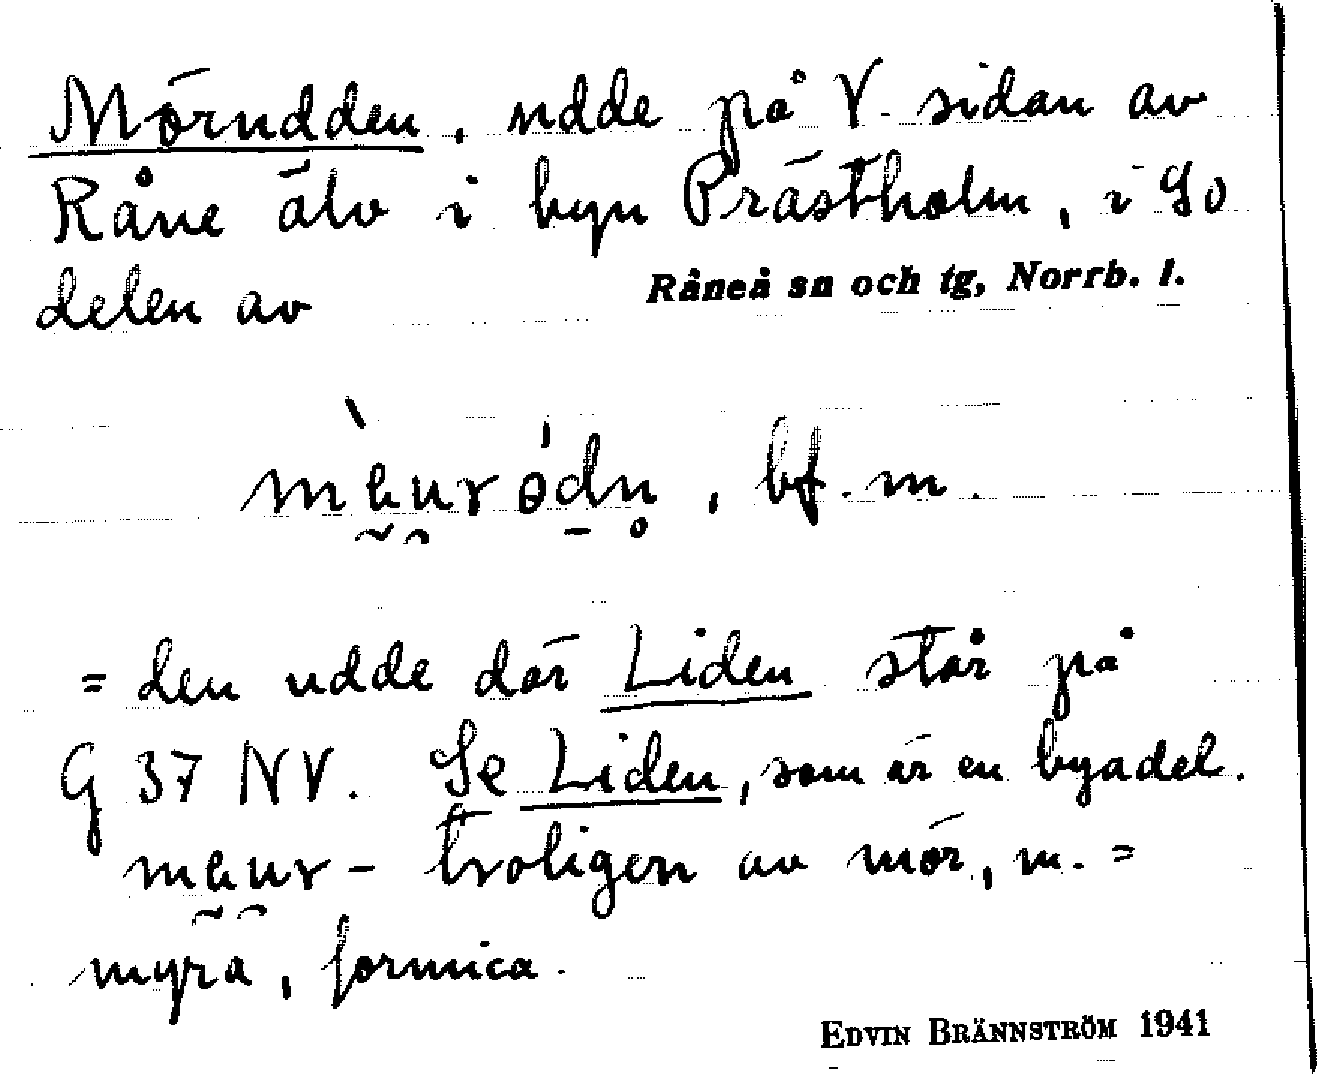 Mörudden, udde på V. sidan av
Råne älv i byn Prästholm, i SO
delen av Råneå sn och tg, Norrb. l.
bf. m.
= den udde där Liden står på
G 37 NV. Se Liden, som är en byadel.
troligen av mör, m. =
myra, formica.
EDVIN BRÄNNSTRÖM 1941